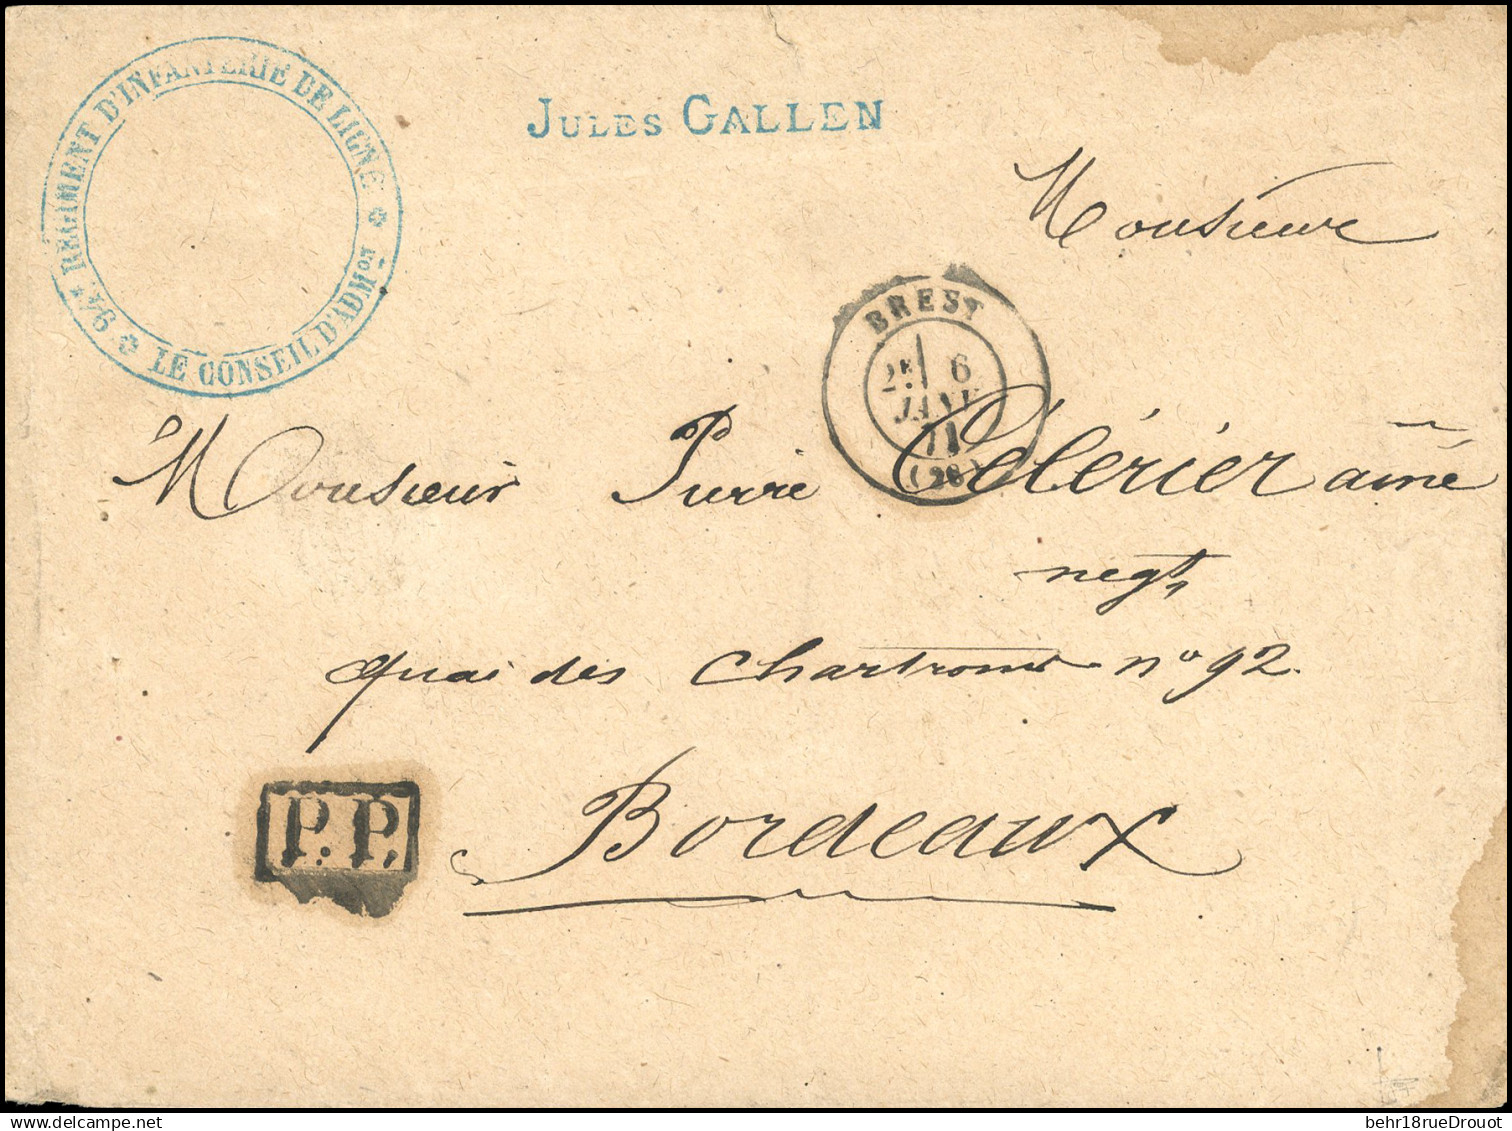 94e RÉGIMENT D'INFANTERIE DE LIGNE
LE CONSEIL D'ADMon
JULES GALLEN
Monsieur
BREST
2E 6
JANV
71
(28)
Monsieur Pierre Célérier ainé
negt
quai des Chartrons no 92
P.P.
Bordeaux
behr18rueDrouot